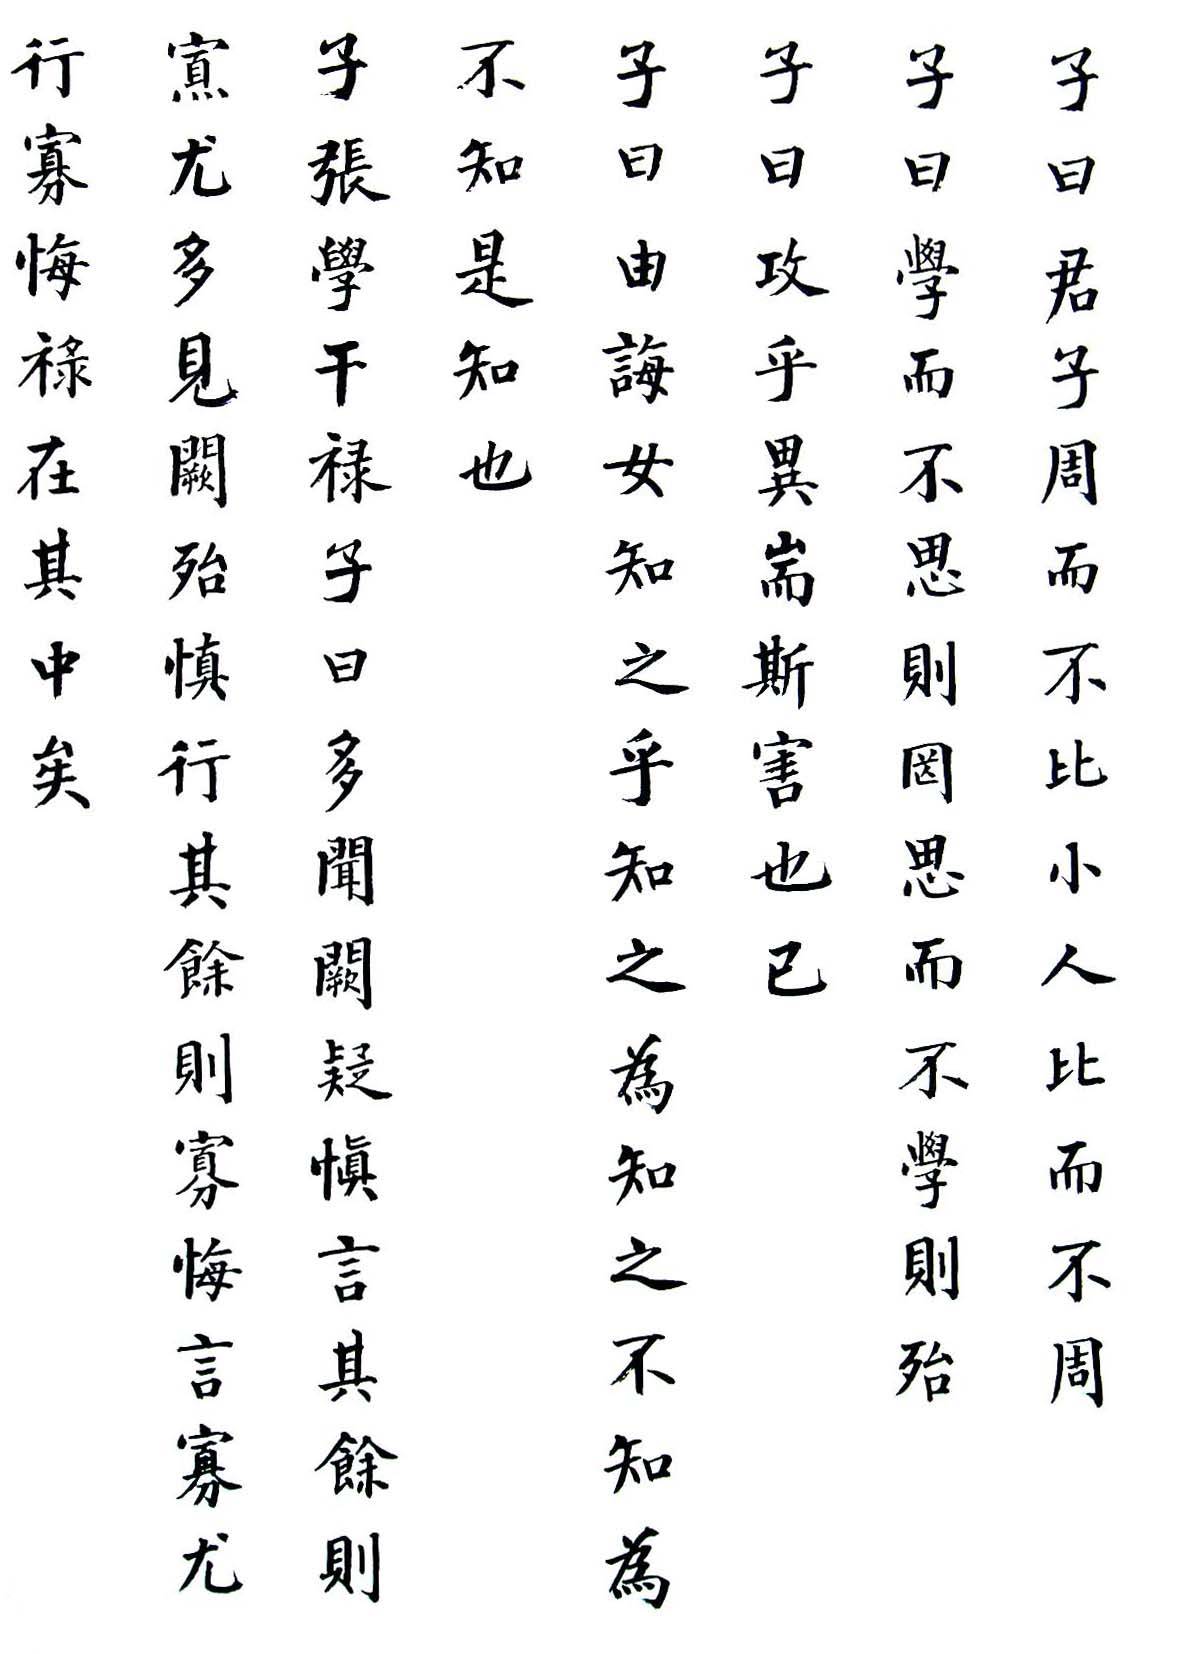 子曰君子周而不比小人比而不周
子曰學而不思則罔思而不學則殆
子曰攻乎異耑斯害也已
子曰由誨女知之乎知之為知之不知為
不知是知也
子張學干祿子曰多聞闕疑慎言其餘則
寡尤多見闕殆慎行其餘則寡悔言寡尤
行寡悔祿在其中矣